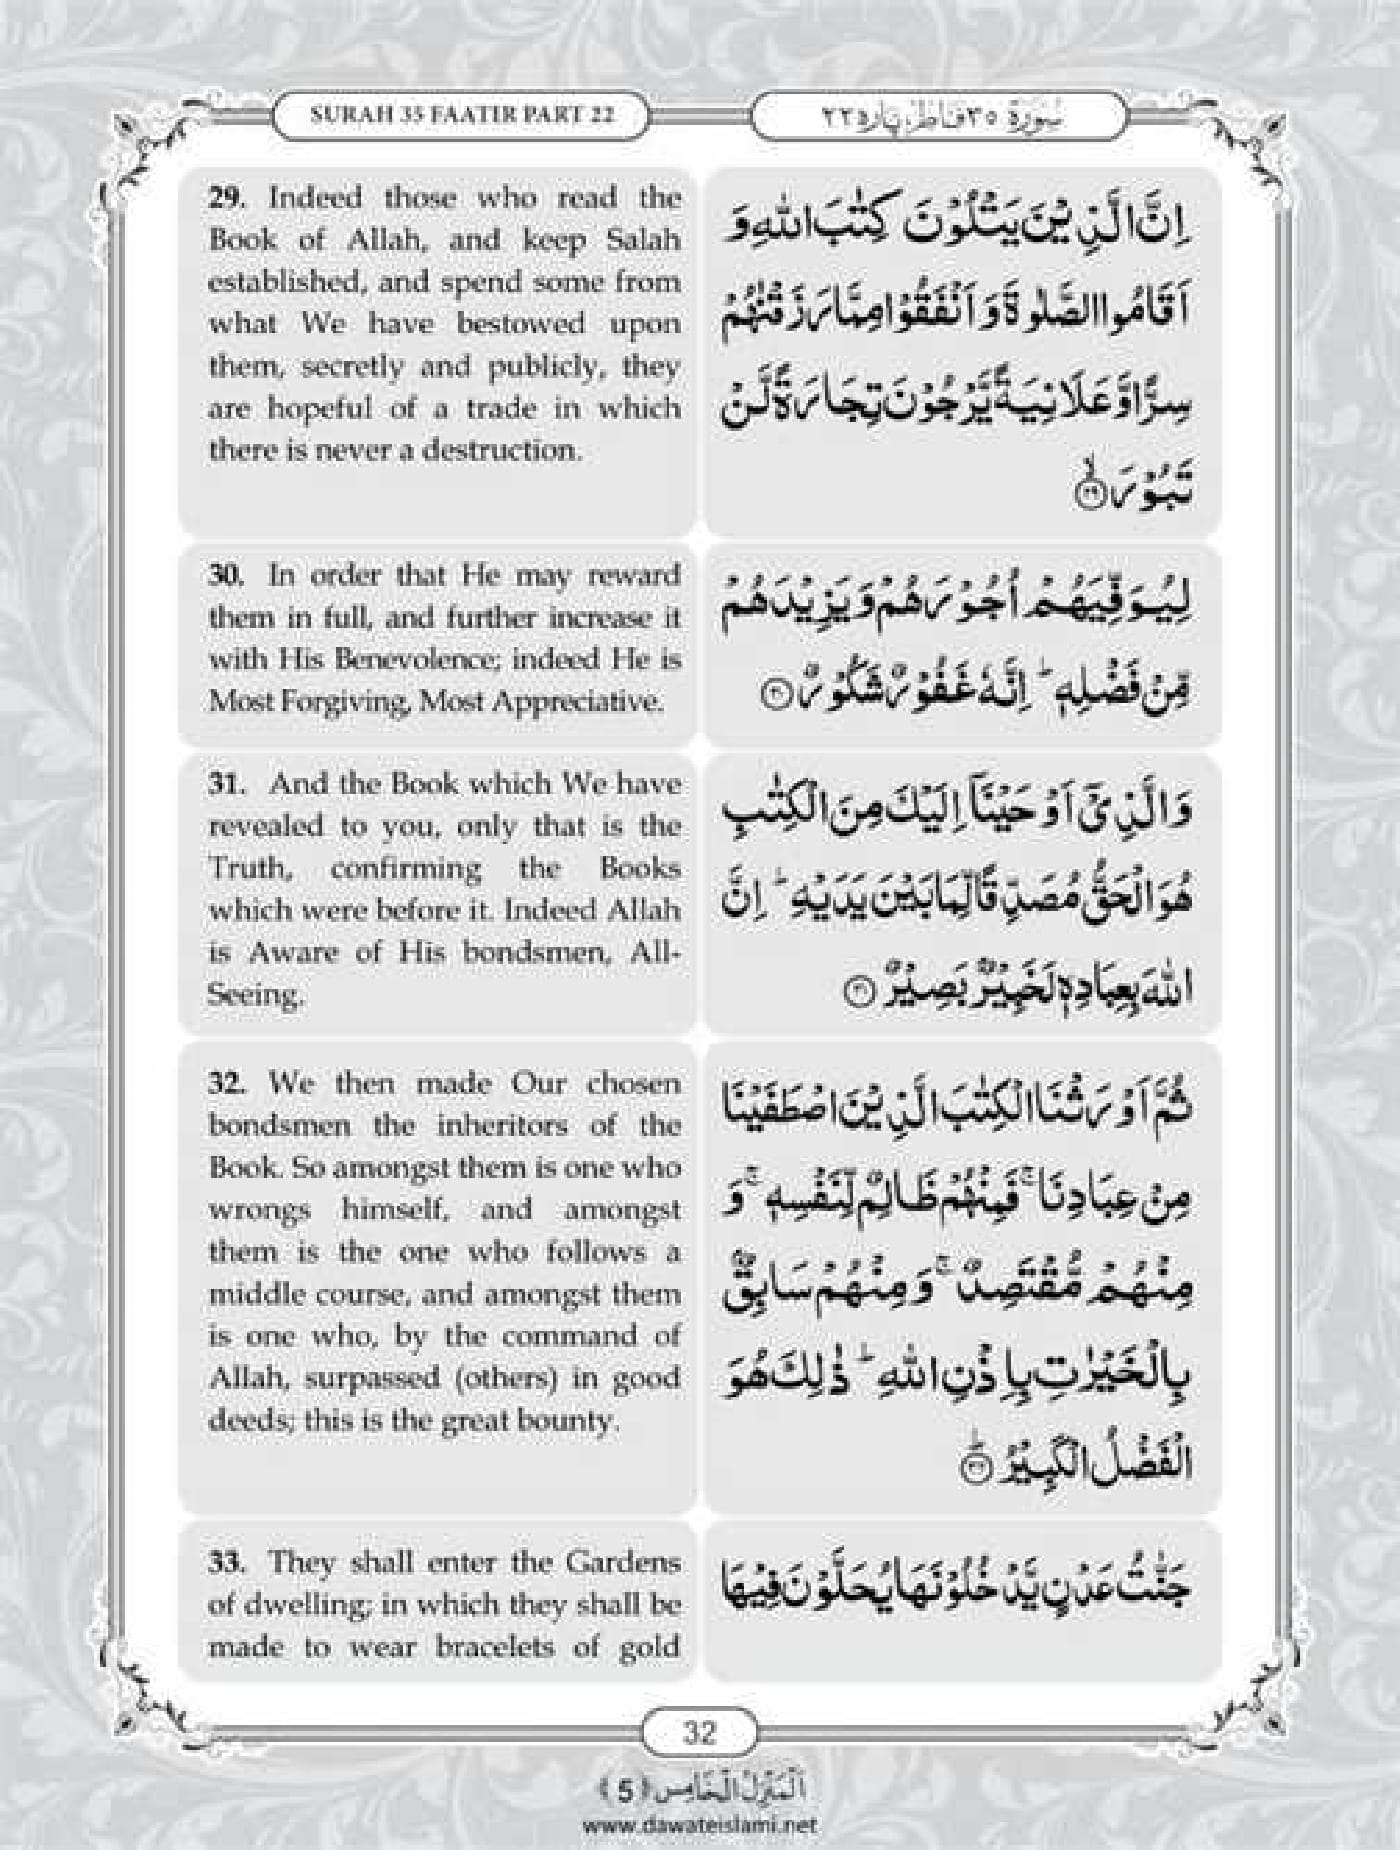 SURAH 35 FAATIR PART 22
سُوْرَةُ ٣٥ فَاطِر، پاره ٢٢
29. Indeed those who read the
Book of Allah, and keep Salah
established, and spend some from
what We have bestowed upon
them, secretly and publicly, they
are hopeful of a trade in which
there is never a destruction.
اِنَّ الَّذِیْنَ یَتْلُوْنَ كِتٰبَ اللّٰهِ وَ
اَقَامُوا الصَّلٰوةَ وَ اَنْفَقُوْا مِمَّا رَزَقْنٰهُمْ
سِرًّا وَّ عَلَانِیَةً یَّرْجُوْنَ تِجَارَةً لَّنْ
تَبُوْرَۙ ۝۲۹
30. In order that He may reward
them in full, and further increase it
with His Benevolence; indeed He is
Most Forgiving, Most Appreciative.
لِیُوَفِّیَهُمْ اُجُوْرَهُمْ وَ یَزِیْدَهُمْ
مِّنْ فَضْلِهٖؕ اِنَّهٗ غَفُوْرٌ شَكُوْرٌ ۝۳۰
31. And the Book which We have
revealed to you, only that is the
Truth, confirming the Books
which were before it. Indeed Allah
is Aware of His bondsmen, All-
Seeing.
وَ الَّذِیْۤ اَوْحَیْنَاۤ اِلَیْكَ مِنَ الْكِتٰبِ
هُوَ الْحَقُّ مُصَدِّقًا لِّمَا بَیْنَ یَدَیْهِؕ اِنَّ
اللّٰهَ بِعِبَادِهٖ لَخَبِیْرٌۢ بَصِیْرٌ ۝۳۱
32. We then made Our chosen
bondsmen the inheritors of the
Book. So amongst them is one who
wrongs himself, and amongst
them is the one who follows a
middle course, and amongst them
is one who, by the command of
Allah, surpassed (others) in good
deeds; this is the great bounty.
ثُمَّ اَوْرَثْنَا الْكِتٰبَ الَّذِیْنَ اصْطَفَیْنَا
مِنْ عِبَادِنَاۚ فَمِنْهُمْ ظَالِمٌ لِّنَفْسِهٖۚ وَ
مِنْهُمْ مُّقْتَصِدٌۚ وَ مِنْهُمْ سَابِقٌۢ
بِالْخَیْرٰتِ بِاِذْنِ اللّٰهِؕ ذٰلِكَ هُوَ
الْفَضْلُ الْكَبِیْرُؕ ۝۳۲
33. They shall enter the Gardens
of dwelling; in which they shall be
made to wear bracelets of gold
جَنّٰتُ عَدْنٍ یَّدْخُلُوْنَهَا یُحَلَّوْنَ فِیْهَا
32
اَلْمَنْزِلُ الْخَامِس ﴿5﴾
www.dawateislami.net